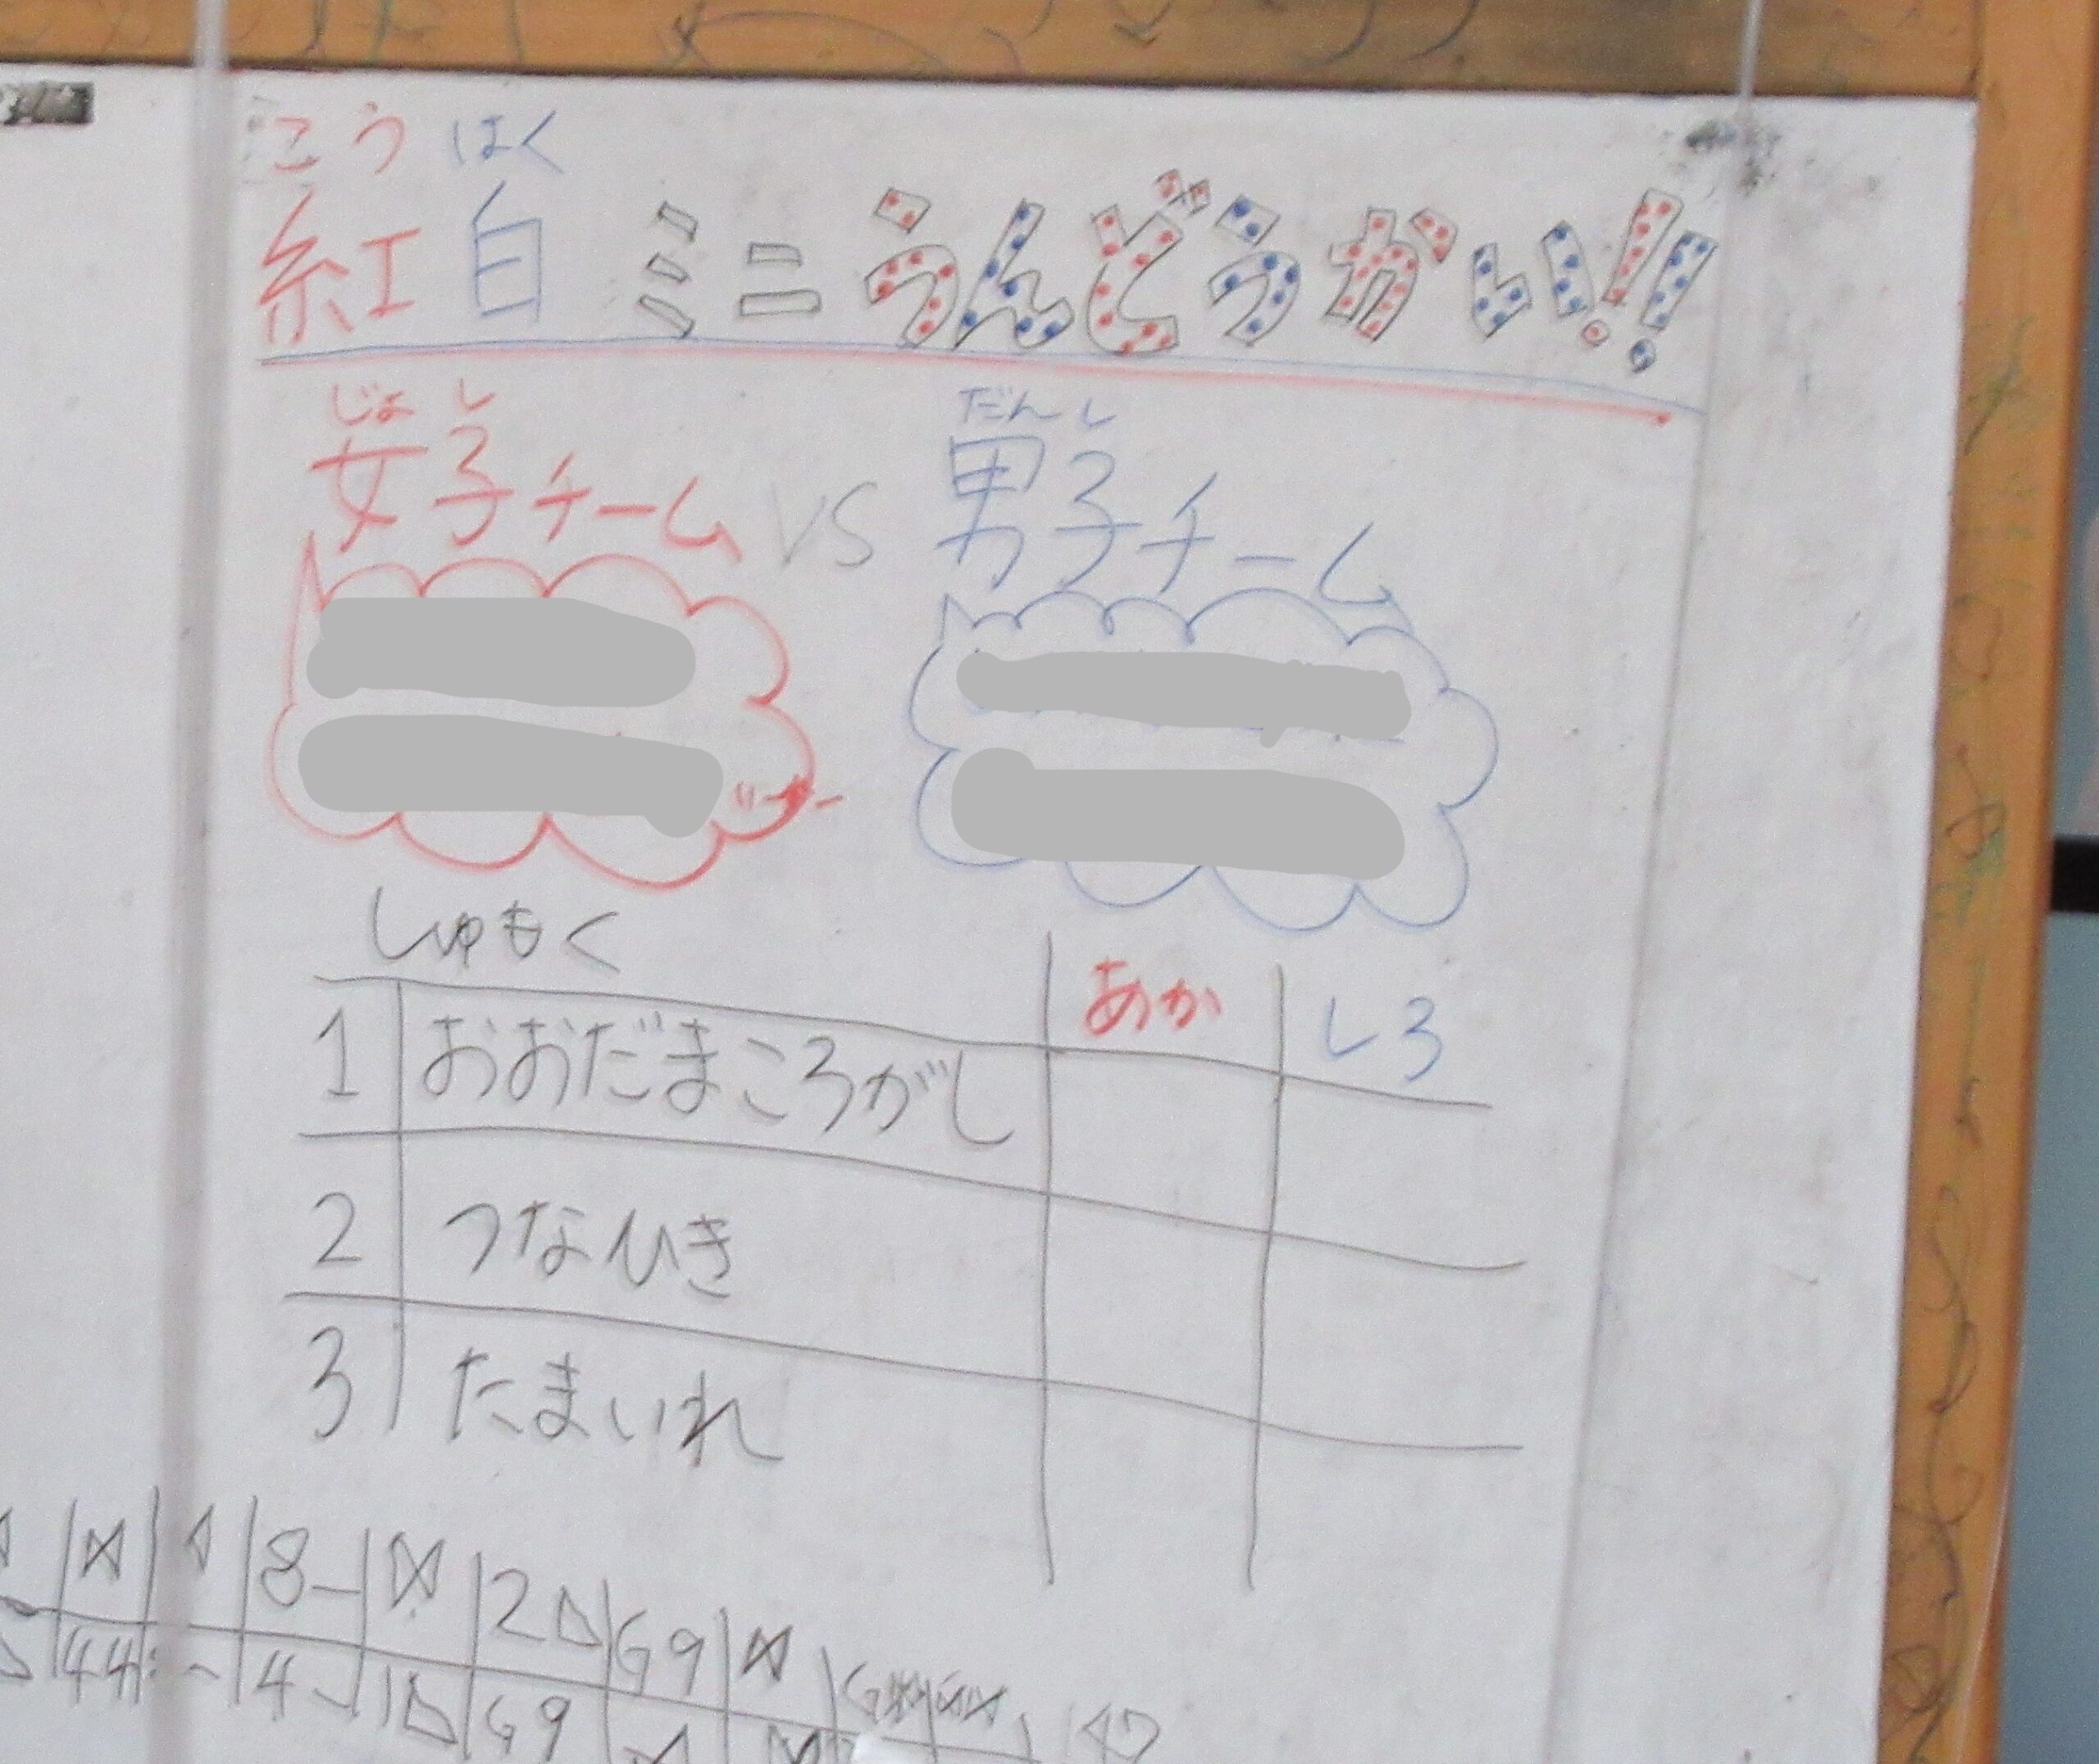 こうはく
紅白 ミニうんどうかい!!
じょし だんし
女子チーム VS 男子チーム
しゅもく あか しろ
1 おおだまころがし
2 つなひき
3 たまいれ
8- 2 G9
44 4 G9